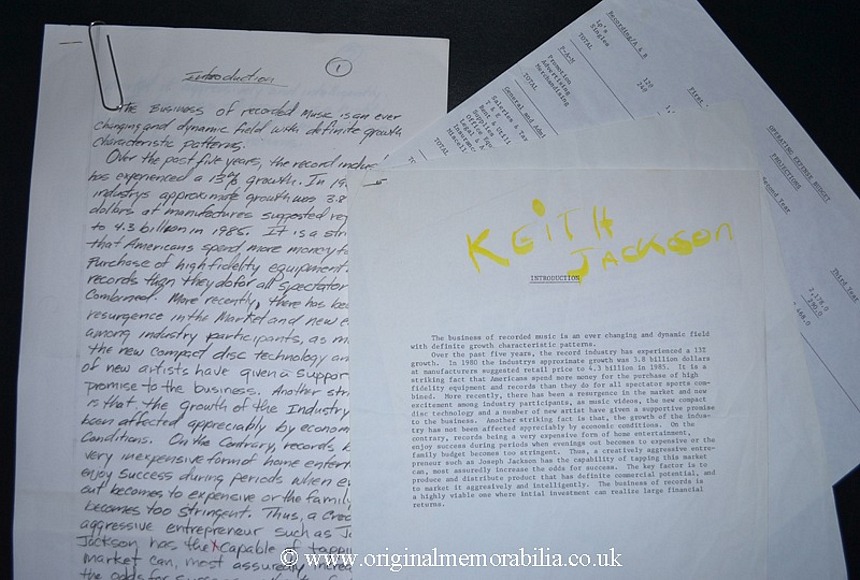 Introduction
1
The Business of recorded Music is an ever
changing and dynamic field with definite growth
characteristic patterns.
Over the past five years, the record
has experienced a 13% growth. In
industrys approximate growth was 3.8
dollars at manufactures suggested
to 4.3 billion in 1985. It is a
that Americans spend more money
Purchase of high fidelity equipment
records than they do for all spectator
Combined. More recently, there has
resurgence in the Market and new
among industry participants, as
the new compact disc technology
of new artists have given a
promise to the business. Another
is that the growth of the Industry
been affected appreciably by
Conditions. On the Contrary, records
very inexpensive form of home
enjoy Success during periods when
out becomes to expensive or the family
becomes too Stringent. Thus, a
aggressive entrepreneur such as
Jackson, has the capable of
market can, most assuredly
Recording/A & R
Lp's
Singles
120
240
TOTAL
P-A-M
Promotion
Advertising
Merchandising
TOTAL
General and
Salaries & Tax
T & E
Rent & Utili
Office
Supplies
Legal &
Insurance
Miscell
TOTAL
First
OPERATING EXPENSE BUDGET
PROJECTIONS
Second Year
Third Year
KEITH
JACKSON
INTRODUCTION
The business of recorded music is an ever changing and dynamic field
with definite growth characteristic patterns.
Over the past five years, the record industry has experienced a 13%
growth. In 1980 the industrys approximate growth was 3.8 billion dollars
at manufacturers suggested retail price to 4.3 billion in 1985. It is a
striking fact that Americans spend more money for the purchase of high
fidelity equipment and records than they do for all spectator sports com-
bined. More recently, there has been a resurgence in the market and new
excitement among industry participants, as music videos, the new compact
disc technology and a number of new artist have given a supportive promise
to the business. Another striking fact is that, the growth of the indus-
try has not been affected appreciably by economic conditions. On the
contrary, records being a very expensive form of home entertainment,
enjoy success during periods when evenings out becomes to expensive or the
family budget becomes too stringent. Thus, a creatively aggressive entre-
preneur such as Joseph Jackson has the capability of tapping this market
can, most assuredly increase the odds for success. The key factor is to
produce and distribute product that has definite commercial potential, and
to market it aggresively and intelligently. The business of records is
a highly viable one where intial investment can realize large financial
returns.
© www.originalmemorabilia.co.uk